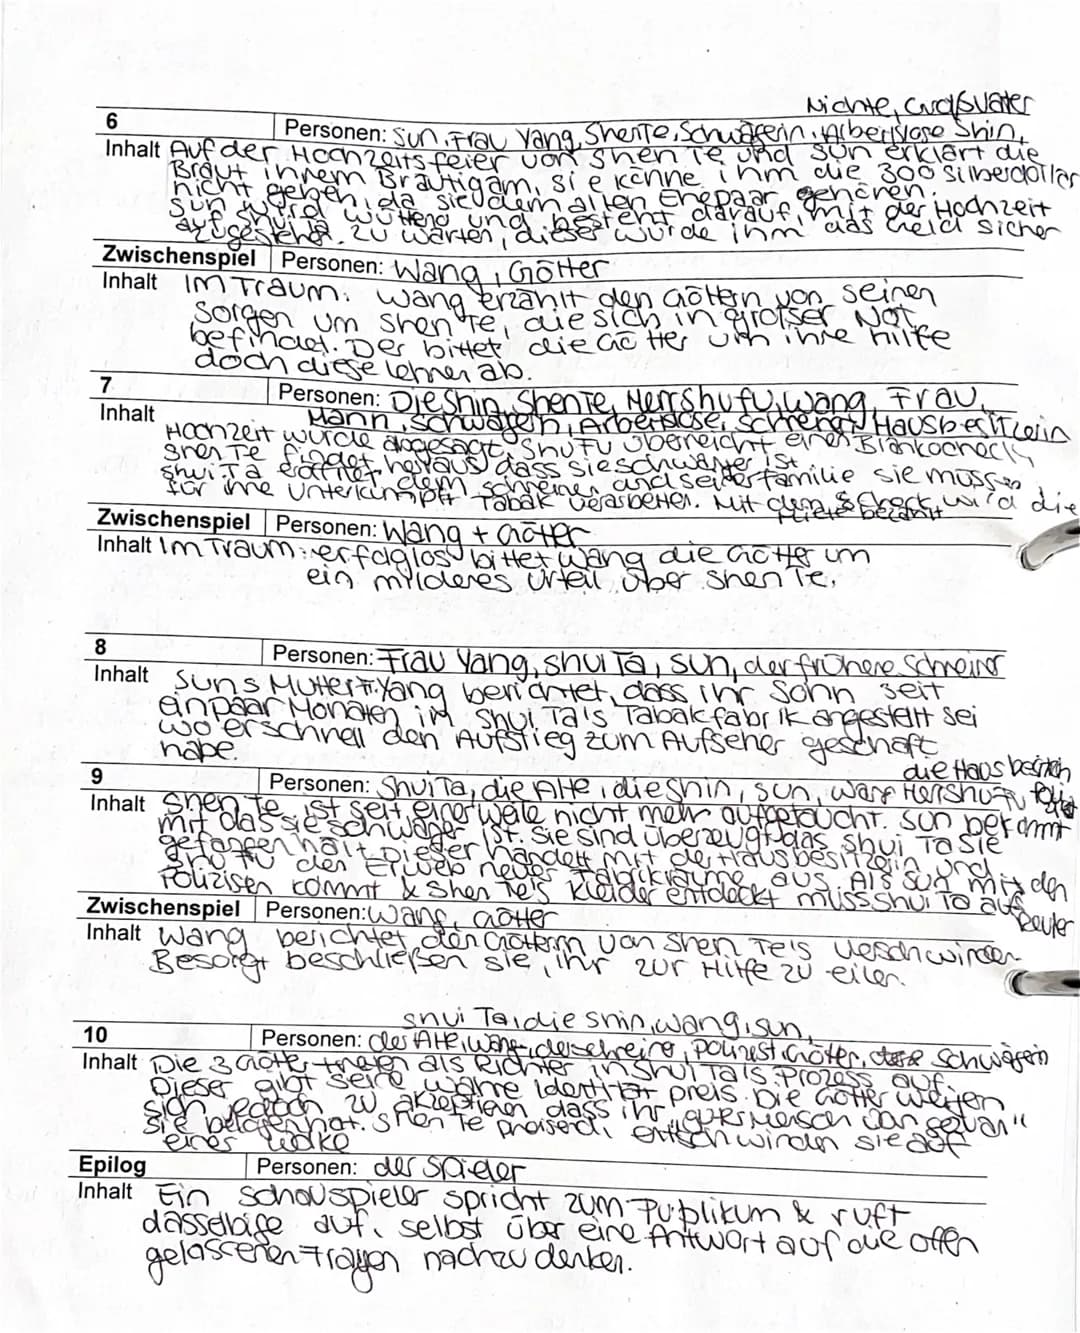 Nichte, Großvater
6 Personen: Sun, Frau Yang, Shen Te, Schwägerin, Arbeitslose Shin,
Inhalt Auf der Hochzeitsfeier von Shen Te und Sun erklärt die
Braut ihrem Bräutigam, sie könne ihm die 300 Silberdollar
nicht geben, da sie dem alten Ehepaar gehören.
Sun wird wütend und besteht darauf, mit der Hochzeit
auf Shui Ta zu warten, dieser würde ihm das Geld sicher
zugestehen.
Zwischenspiel Personen: Wang, Götter
Inhalt Im Traum: Wang erzählt den Göttern von seinen
Sorgen um Shen Te, die sich in großer Not
befindet. Der bittet die Götter um ihre Hilfe
doch diese lehnen ab.
7 Personen: Die Shin, Shen Te, Herr Shu Fu, Wang, Frau,
Mann, Schwägerin, Arbeitslose, Schreiner, Hausbesitzerin
Inhalt Hochzeit wurde abgesagt, Shu Fu überreicht einen Blankocheck
Shen Te findet heraus dass sie schwanger ist.
Shui Ta eröffnet, dem Schreiner und seiner Familie sie müssen
für ihre Unterkunft Tabak verarbeiten. Mit dem Check wird die
Miete bezahlt
Zwischenspiel Personen: Wang + Götter
Inhalt Im Traum: erfolglos bittet Wang die Götter um
ein milderes Urteil über Shen Te.
8 Personen: Frau Yang, Shui Ta, Sun, der frühere Schreiner
Inhalt Suns Mutter Fr. Yang berichtet, dass ihr Sohn seit
ein paar Monaten in Shui Ta's Tabakfabrik angestellt sei
wo er schnell den Aufstieg zum Aufseher geschafft
habe.
die Hausbesitzerin
9 Personen: Shui Ta, die Alte, die Shin, Sun, Wang Herr Shu Fu
Inhalt Shen Te ist seit einer Weile nicht mehr aufgetaucht. Sun bekommt
mit das sie schwanger ist. Sie sind überzeugt das Shui Ta sie
gefangen hält. Dieser handelt mit der Hausbesitzerin und
Shu Fu den Erwerb neuer Fabrikräume aus. Als Sun mit den
Polizisten kommt & Shen Te's Kleider entdeckt muss Shui Ta auf
Zwischenspiel Personen: Wang, Götter
Inhalt Wang berichtet den Göttern von Shen Te's Verschwinden
Besorgt beschließen sie, ihr zur Hilfe zu eilen.
Shui Ta, die Shin, Wang, Sun,
10 Personen: der Alte, Wang, der Schreiner, Polizist Götter, Schwägerin
Inhalt Die 3 Götter treten als Richter in Shui Ta's Prozess auf.
Dieser gibt seine wahre Identität preis. Die Götter weigern
sich jedoch zu akzeptieren dass ihr "guter Mensch von Sezuan"
sie belogen hat. Shen Te preisend, entschwinden sie auf
einer Wolke
Epilog Personen: der Spieler
Inhalt Ein Schauspieler spricht zum Publikum & ruft
dasselbige auf, selbst über eine Antwort auf die offen
gelassenen Fragen nachzudenken.